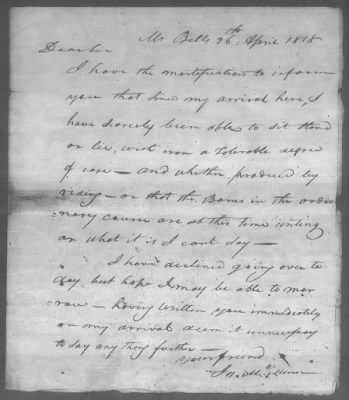 Mr Bells 26th April 1818
Dear Sir
I have the mortification to inform
you that since my arrival here, I
have scarcely been able to sit stand
or lie, with even a tolerable degree
of ease — and whether produced by
riding — or that the Bones in the ordi
nary course are at this time uniting
or what it is I cant say —
I have declined going over to
day, but hope I may be able to mor
row — having written you immediately
on my arrival deem it unnecessary
to say any thing further —
Your friend